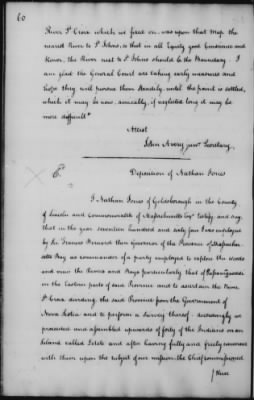 60
River St Croix which we fixed on, was upon that Map the
nearest River to St Johns, so that in all Equity good Conscience and
Honor, the River next to St Johns should be the Boundary. I
am glad the General Court are taking early measures and
hope they will pursue them steadily until the point is settled,
which it may be now, amicably, if neglected long it may be
more difficult"
Attest
John Avery junr Secretary.
Deposition of Nathan Jones
I Nathan Jones of Goldsborough in the County
of Lincoln and Commonwealth of Massachusetts Esqr testify and say
that in the year seventeen hundred and sixty four I was employed
by Sir Francis Bernard then Governor of the Province of Massachu-
setts Bay as commander of a party employed to explore the Woods
and view the Rivers and Bays particularly that of Passamaquoddi
in the Eastern parts of said Province and to ascertain the River
St Croix dividing the said Province from the Government of
Nova Scotia and to perform a Survey thereof; accordingly we
proceeded and assembled upwards of forty of the Indians on an
Island called and after having fully and freely conversed
with them upon the subject of our mission the Chief commissioned
three